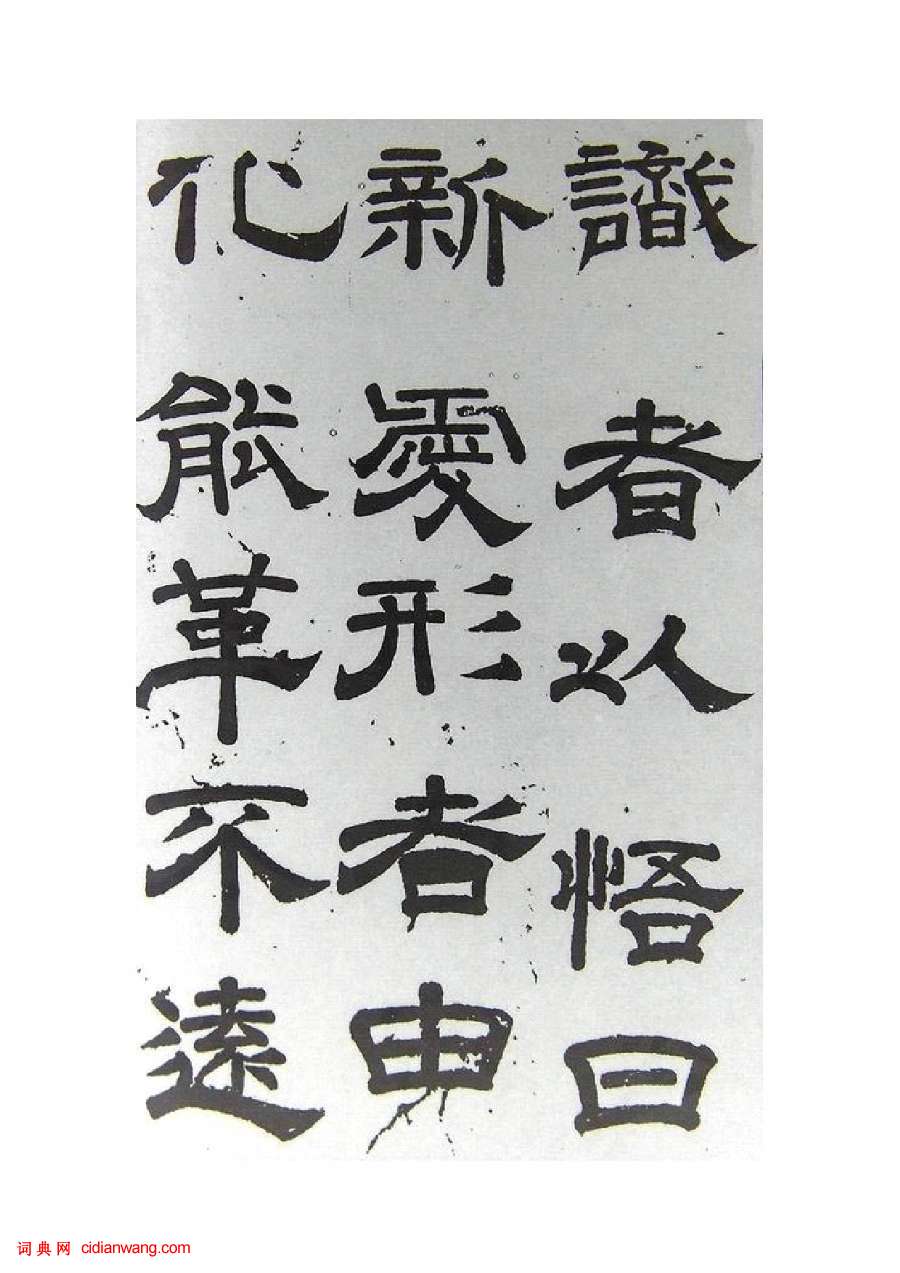 識者以悟日
新形者由
化能革不遠
词典网 cidianwang.com